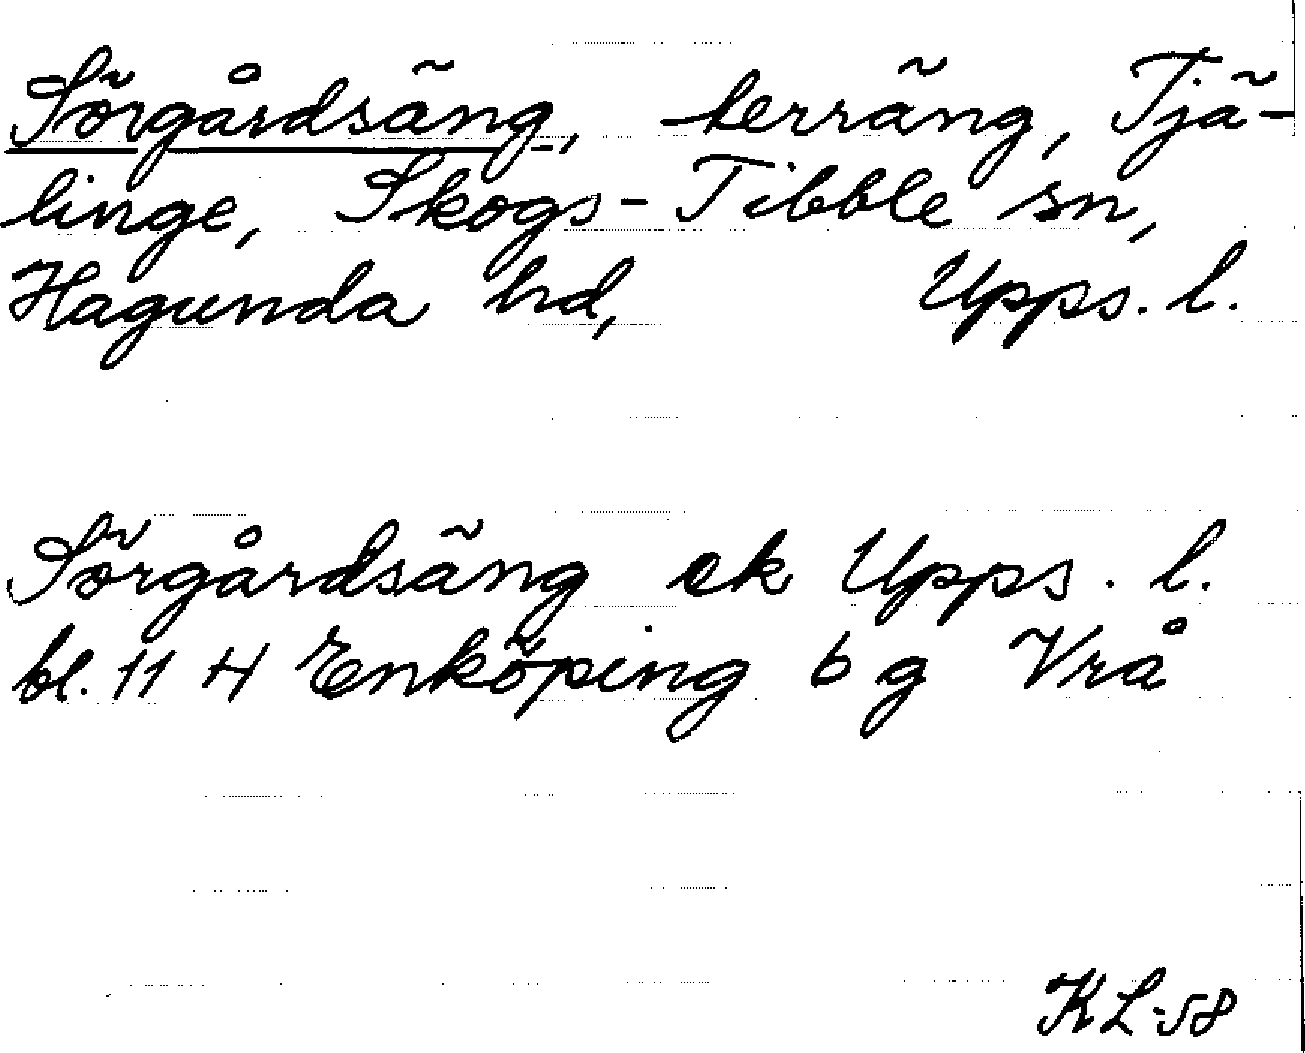 Sörgårdsäng, terräng, Tjä-
linge, Skogs-Tibble sn,
Hagunda hd, Upps. l.
Sörgårdsäng ek Upps. l.
bl. 11 H Enköping 6 g Vrå
KL-58